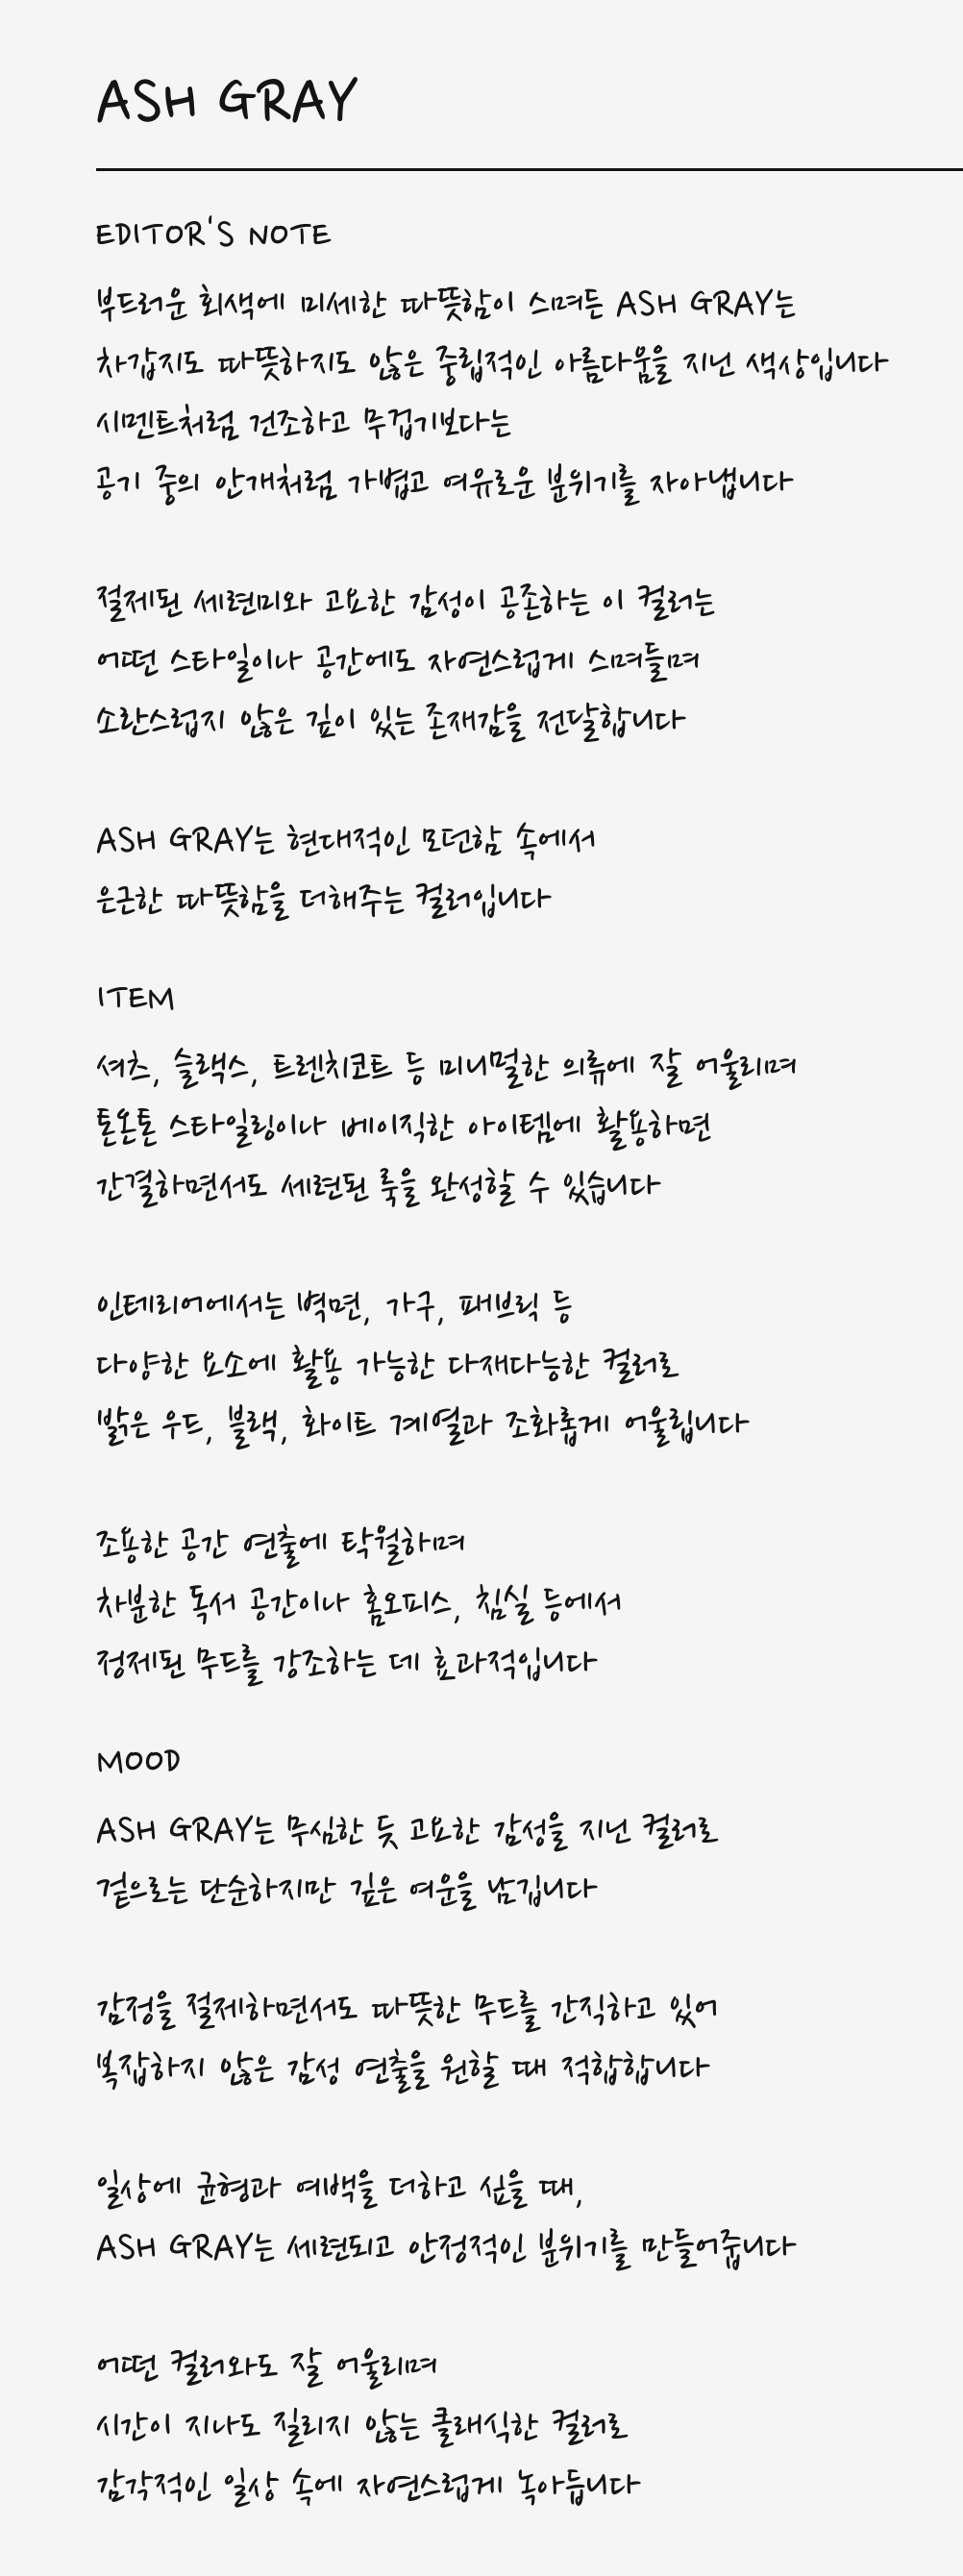 ASH GRAY
EDITOR'S NOTE
부드러운 회색에 미세한 따뜻함이 스며든 ASH GRAY는
차갑지도 따뜻하지도 않은 중립적인 아름다움을 지닌 색상입니다
시멘트처럼 건조하고 무겁기보다는
공기 중의 안개처럼 가볍고 여유로운 분위기를 자아냅니다
절제된 세련미와 고요한 감성이 공존하는 이 컬러는
어떤 스타일이나 공간에도 자연스럽게 스며들며
소란스럽지 않은 깊이 있는 존재감을 전달합니다
ASH GRAY는 현대적인 모던함 속에서
은근한 따뜻함을 더해주는 컬러입니다
ITEM
셔츠, 슬랙스, 트렌치코트 등 미니멀한 의류에 잘 어울리며
톤온톤 스타일링이나 베이직한 아이템에 활용하면
간결하면서도 세련된 룩을 완성할 수 있습니다
인테리어에서는 벽면, 가구, 패브릭 등
다양한 요소에 활용 가능한 다재다능한 컬러로
밝은 우드, 블랙, 화이트 계열과 조화롭게 어울립니다
조용한 공간 연출에 탁월하며
차분한 독서 공간이나 홈오피스, 침실 등에서
정제된 무드를 강조하는 데 효과적입니다
MOOD
ASH GRAY는 무심한 듯 고요한 감성을 지닌 컬러로
겉으로는 단순하지만 깊은 여운을 남깁니다
감정을 절제하면서도 따뜻한 무드를 간직하고 있어
복잡하지 않은 감성 연출을 원할 때 적합합니다
일상에 균형과 여백을 더하고 싶을 때,
ASH GRAY는 세련되고 안정적인 분위기를 만들어줍니다
어떤 컬러와도 잘 어울리며
시간이 지나도 질리지 않는 클래식한 컬러로
감각적인 일상 속에 자연스럽게 녹아듭니다